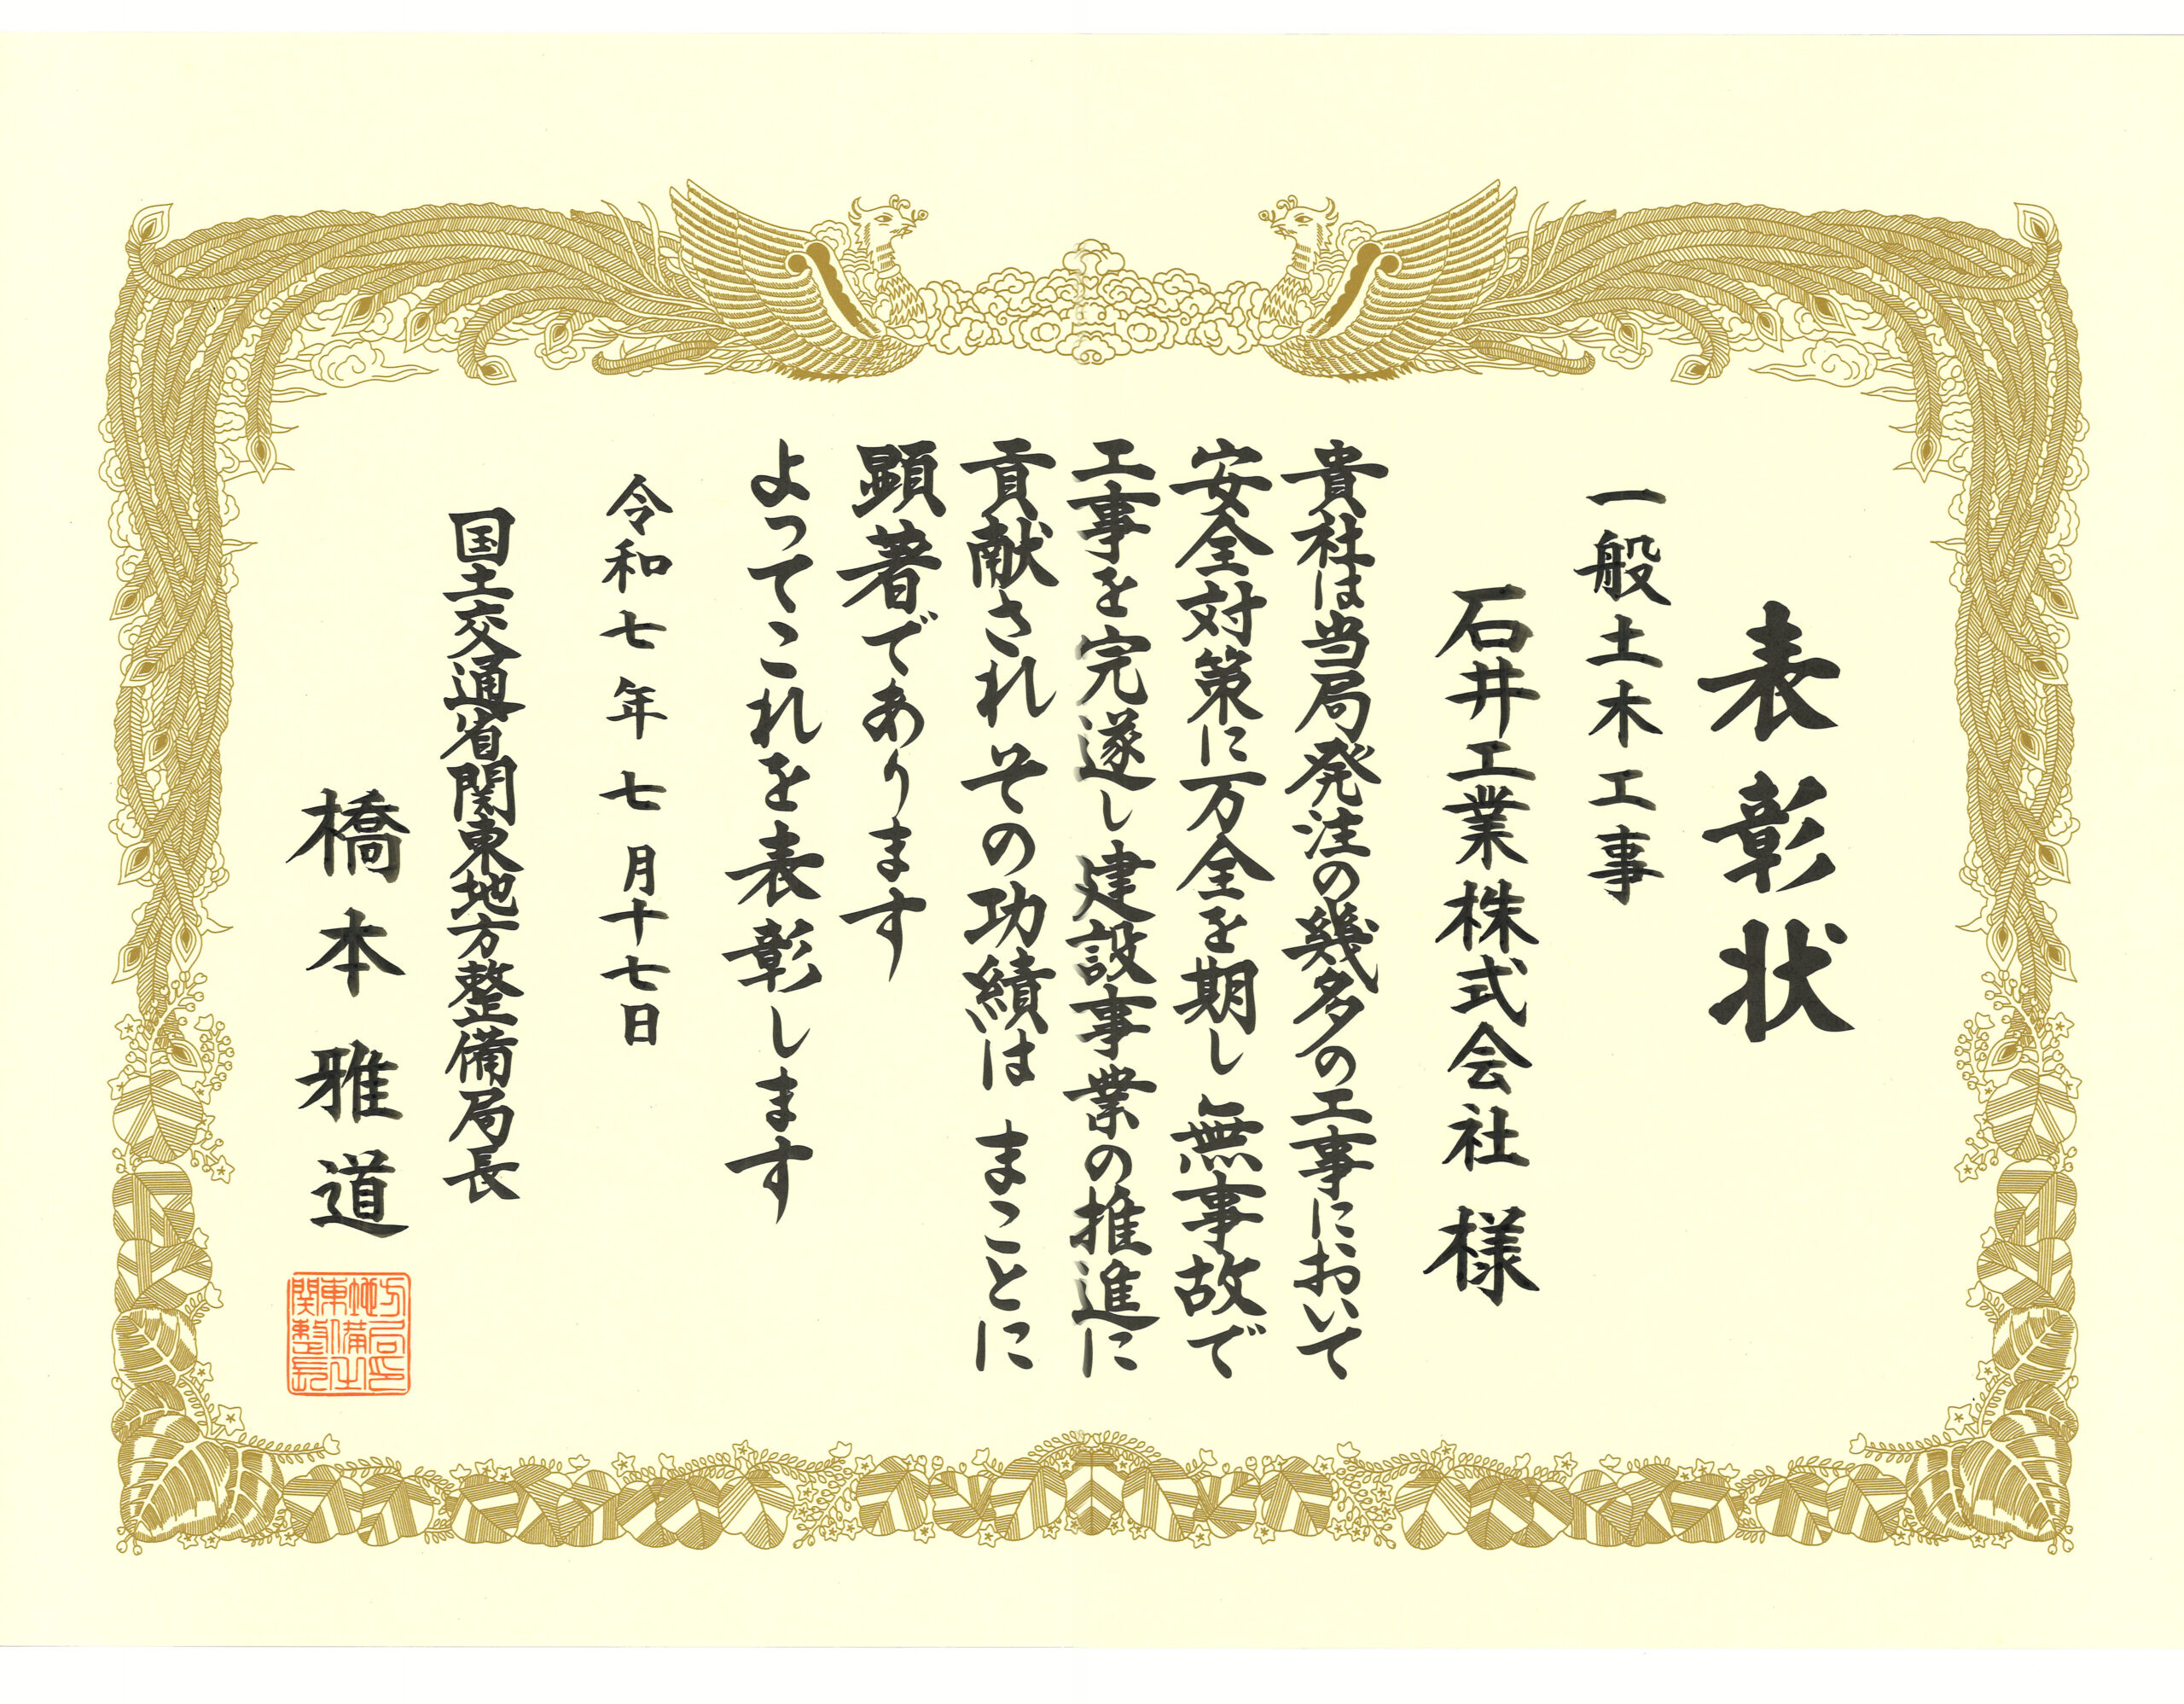 表彰状
一般土木工事
石井工業株式会社 様
貴社は当局発注の幾多の工事において
安全対策に万全を期し 無事故で
工事を完遂し 建設事業の推進に
貢献されその功績は まことに
顕著であります
よってこれを表彰します
令和七年七月十七日
国土交通省関東地方整備局長
橋本雅道
関東地方
整備局
長之印